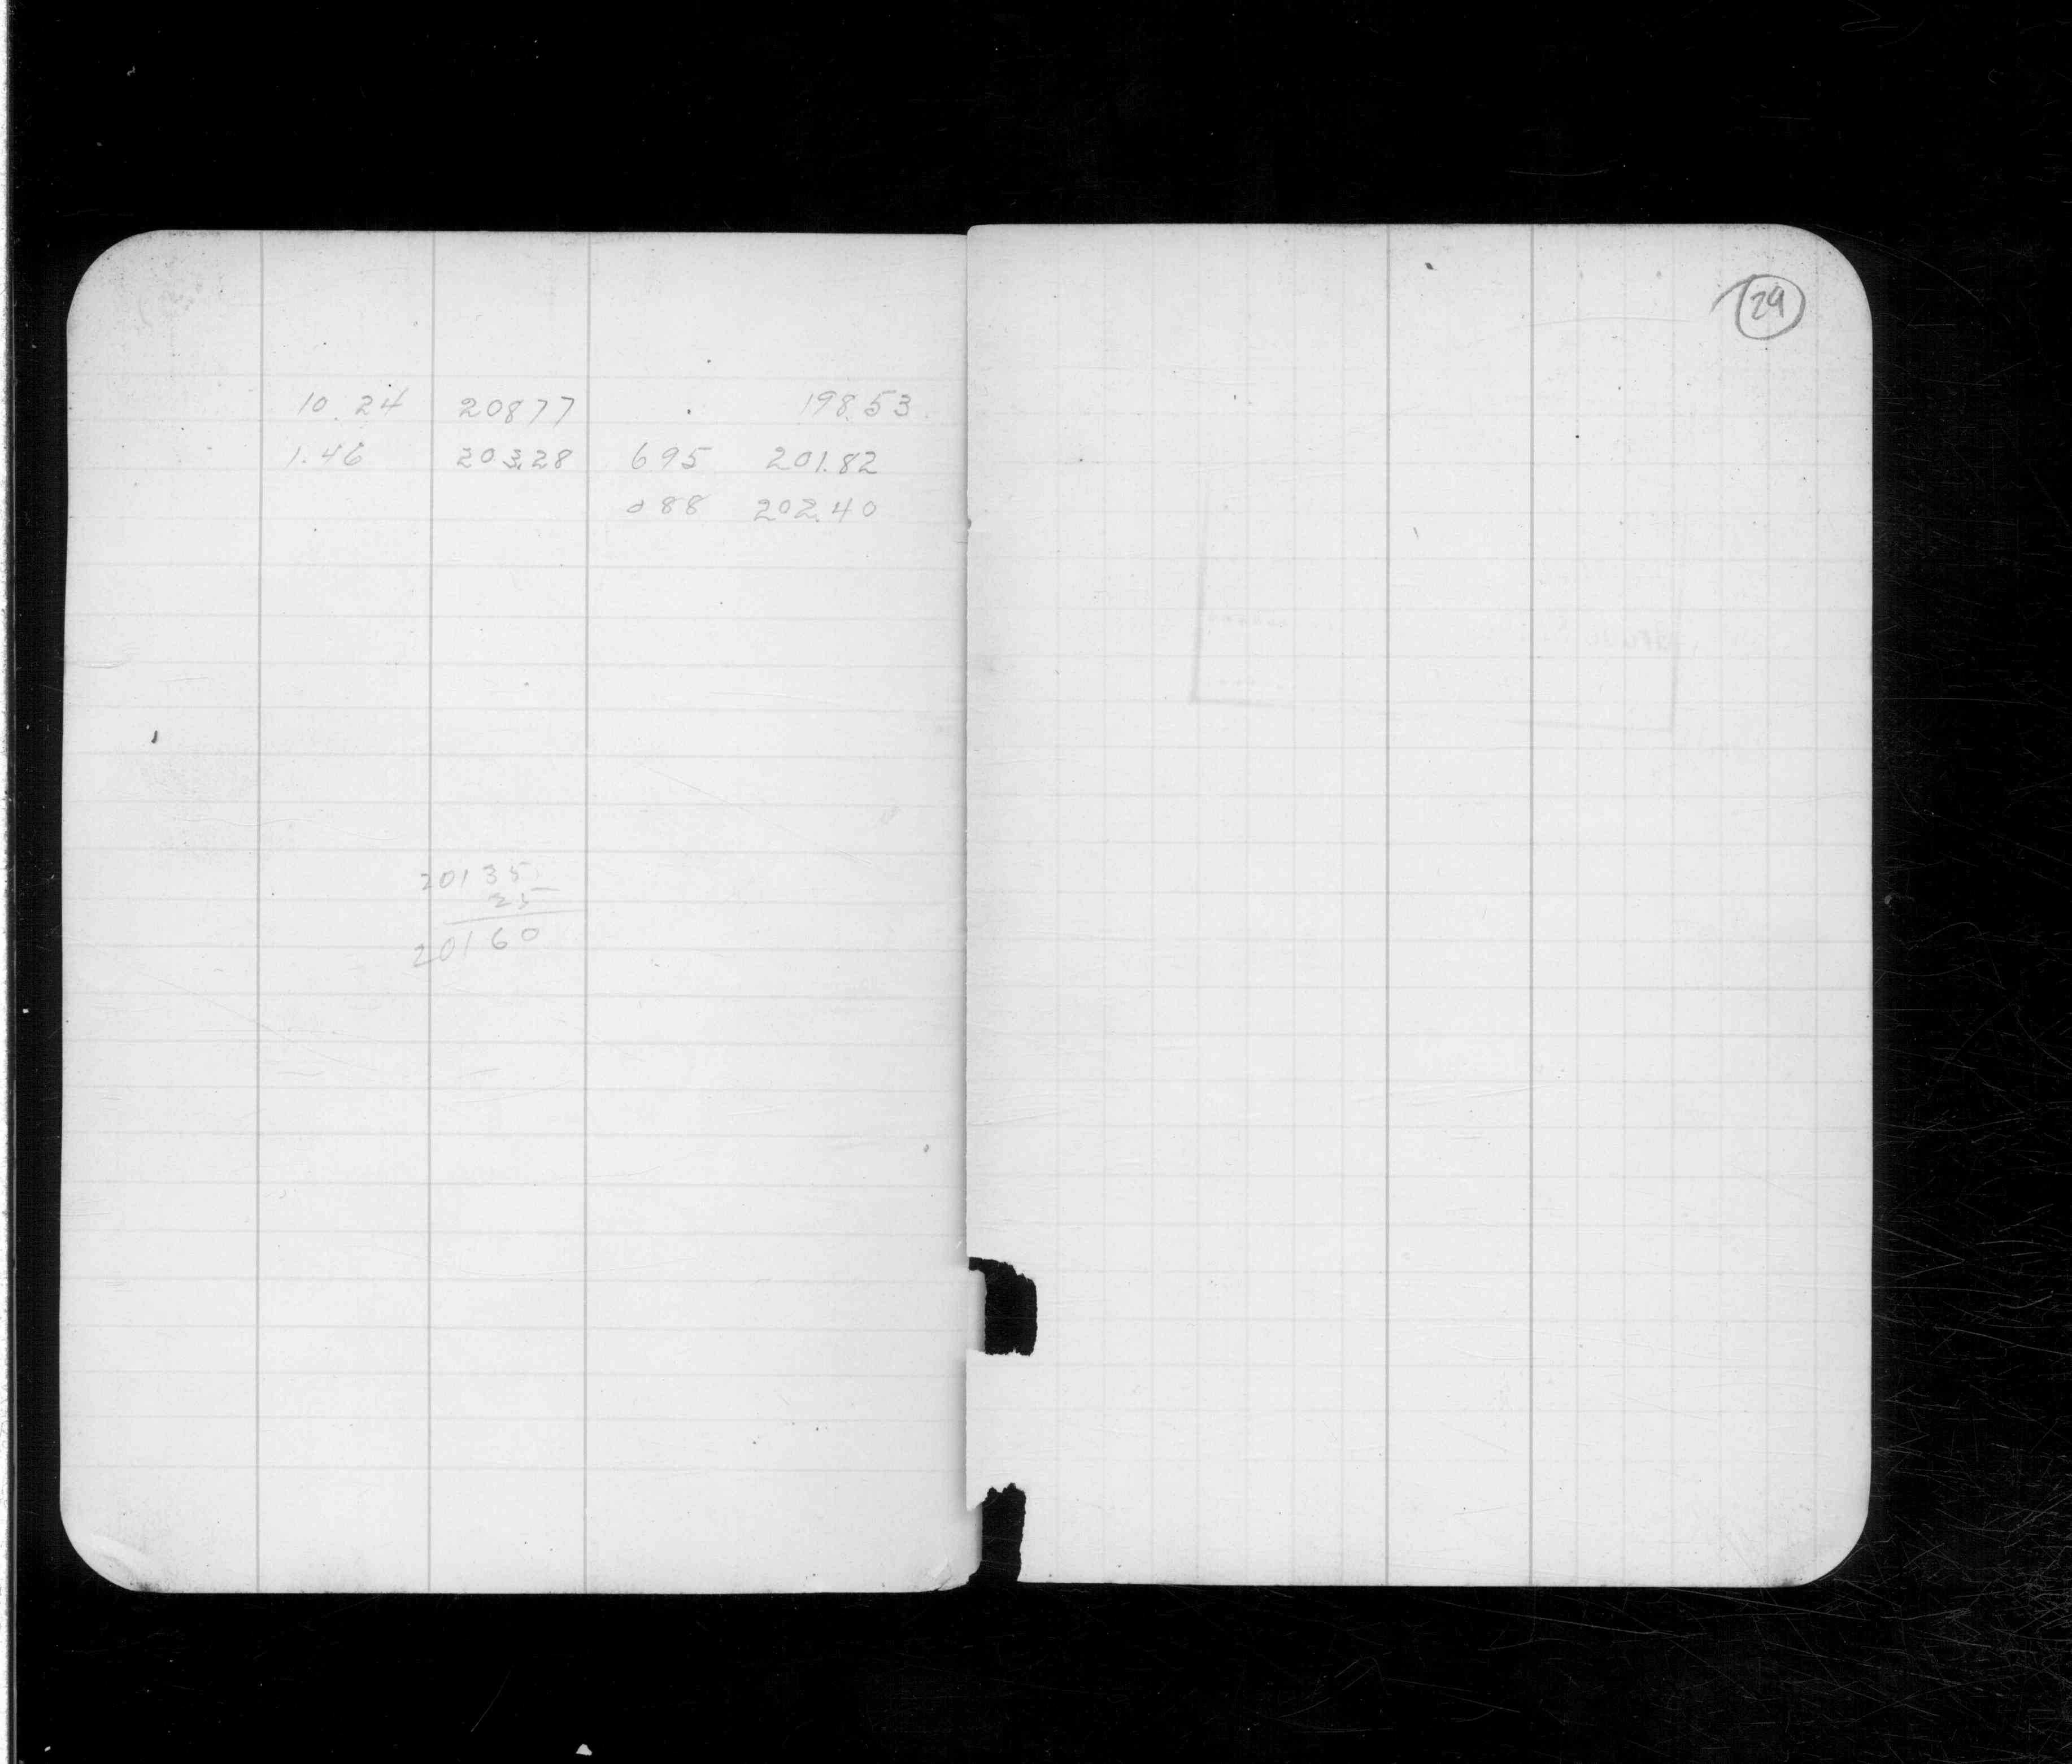 10.24 20877 198.53
1.46 203.28 695 201.82
088 202.40
20135
25
20160
29